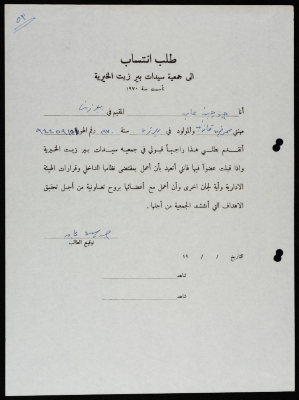 ٥٣
طلب انتساب
الى جمعية سيدات بير زيت الخيرية
تأسست سنة ١٩٧٠
أنا جورجيت عابد المقيم في بيرزيت
مهنتي والمولود في بيرزيت سنة رقم الهوية
أتقدم بطلبي هذا راجياً قبولي في جمعية سيدات بير زيت الخيرية
واذا قبلت عضواً فيها فانني أتعهد بأن أعمل بمقتضى نظامها الداخلي وقرارات الهيئة
الادارية وأية لجان اخرى وأن أعمل مع أعضائها بروح تعاونية من أجل تحقيق
الاهداف التي أنشئت الجمعية من أجلها .
توقيع الطالب
التاريخ / / ١٩
شاهد
شاهد